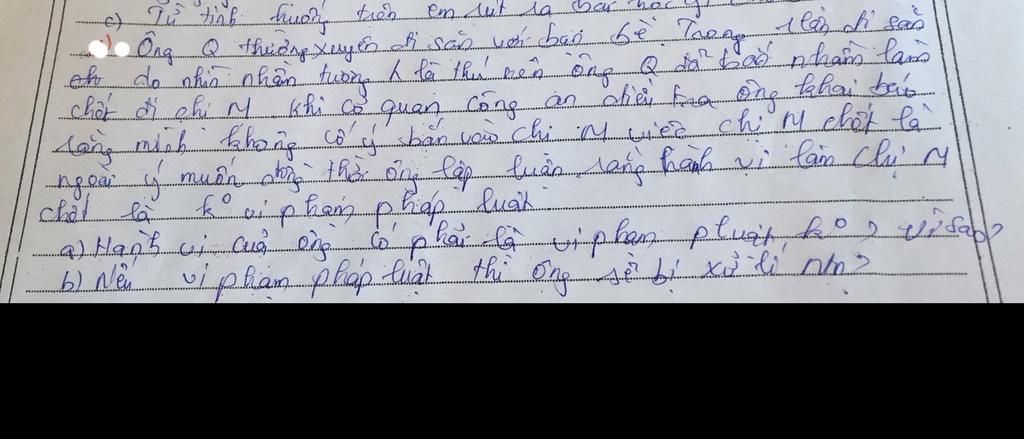 c) Từ tình huống trên em rút ra bài học gì
Ông Q thường xuyên đi săn với bạn bè. Trong 1 lần đi săn
do nhìn nhầm tưởng là thú nên ông Q đã bắn nhầm làm
chết đi chị M khi cơ quan công an điều tra ông khai báo
rằng mình không cố ý bắn vào chị M việc chị M chết là
ngoài ý muốn đồng thời ông lập luận rằng hành vi làm chị M
chết là k⁰ vi phạm pháp luật
a) Hành vi của ông có phải là vi phạm pluật k⁰? vì sao?
b) Nếu vi phạm pháp luật thì ông sẽ bị xử lí ntn?